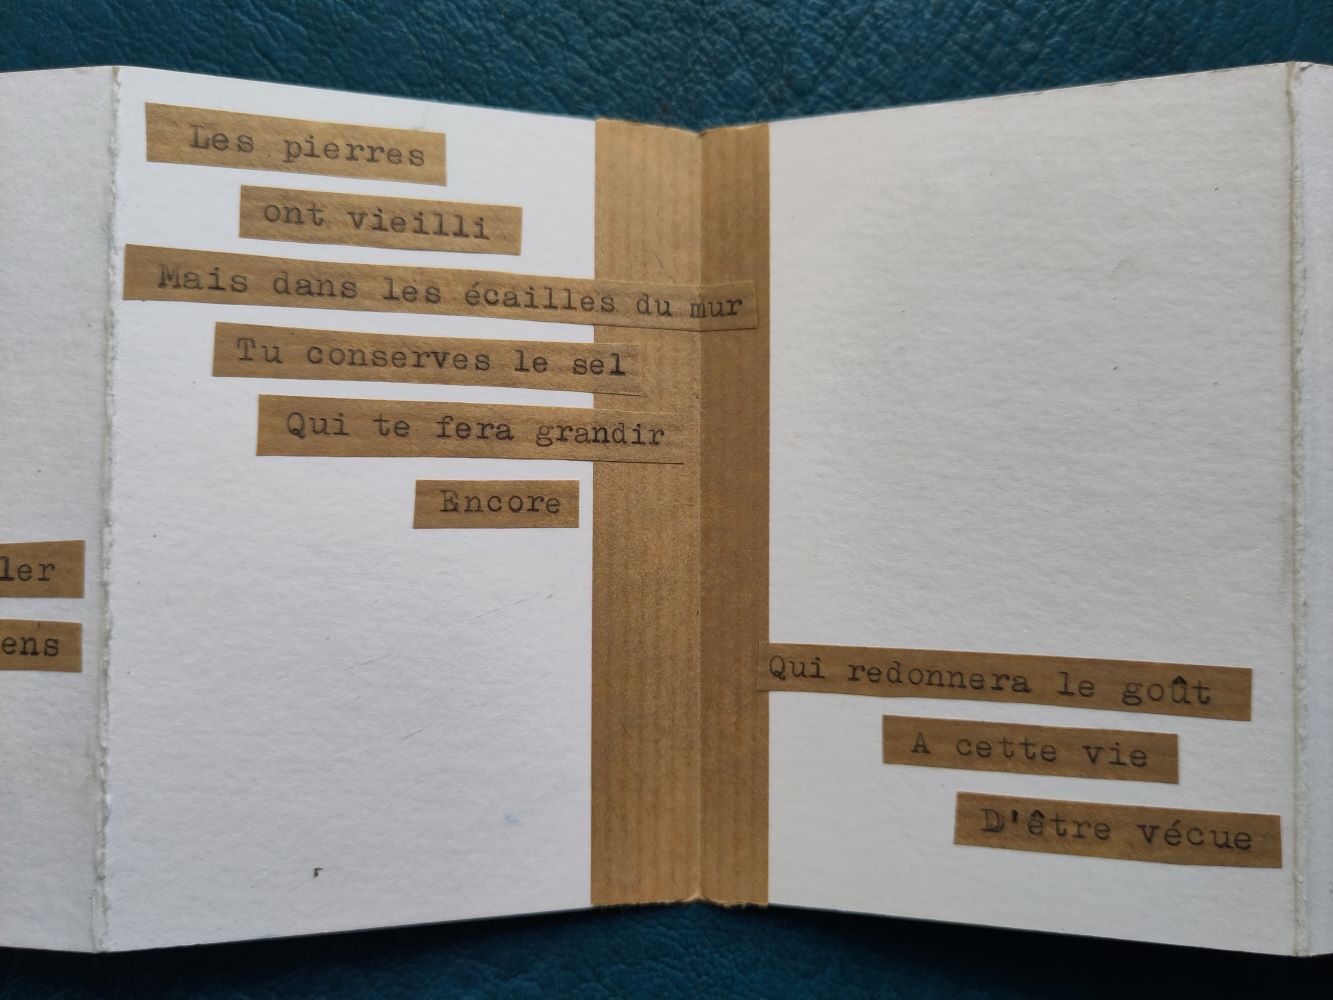 Les pierres
ont vieilli
Mais dans les écailles du mur
Tu conserves le sel
Qui te fera grandir
Encore
ler
ens
Qui redonnera le goût
A cette vie
D'être vécue